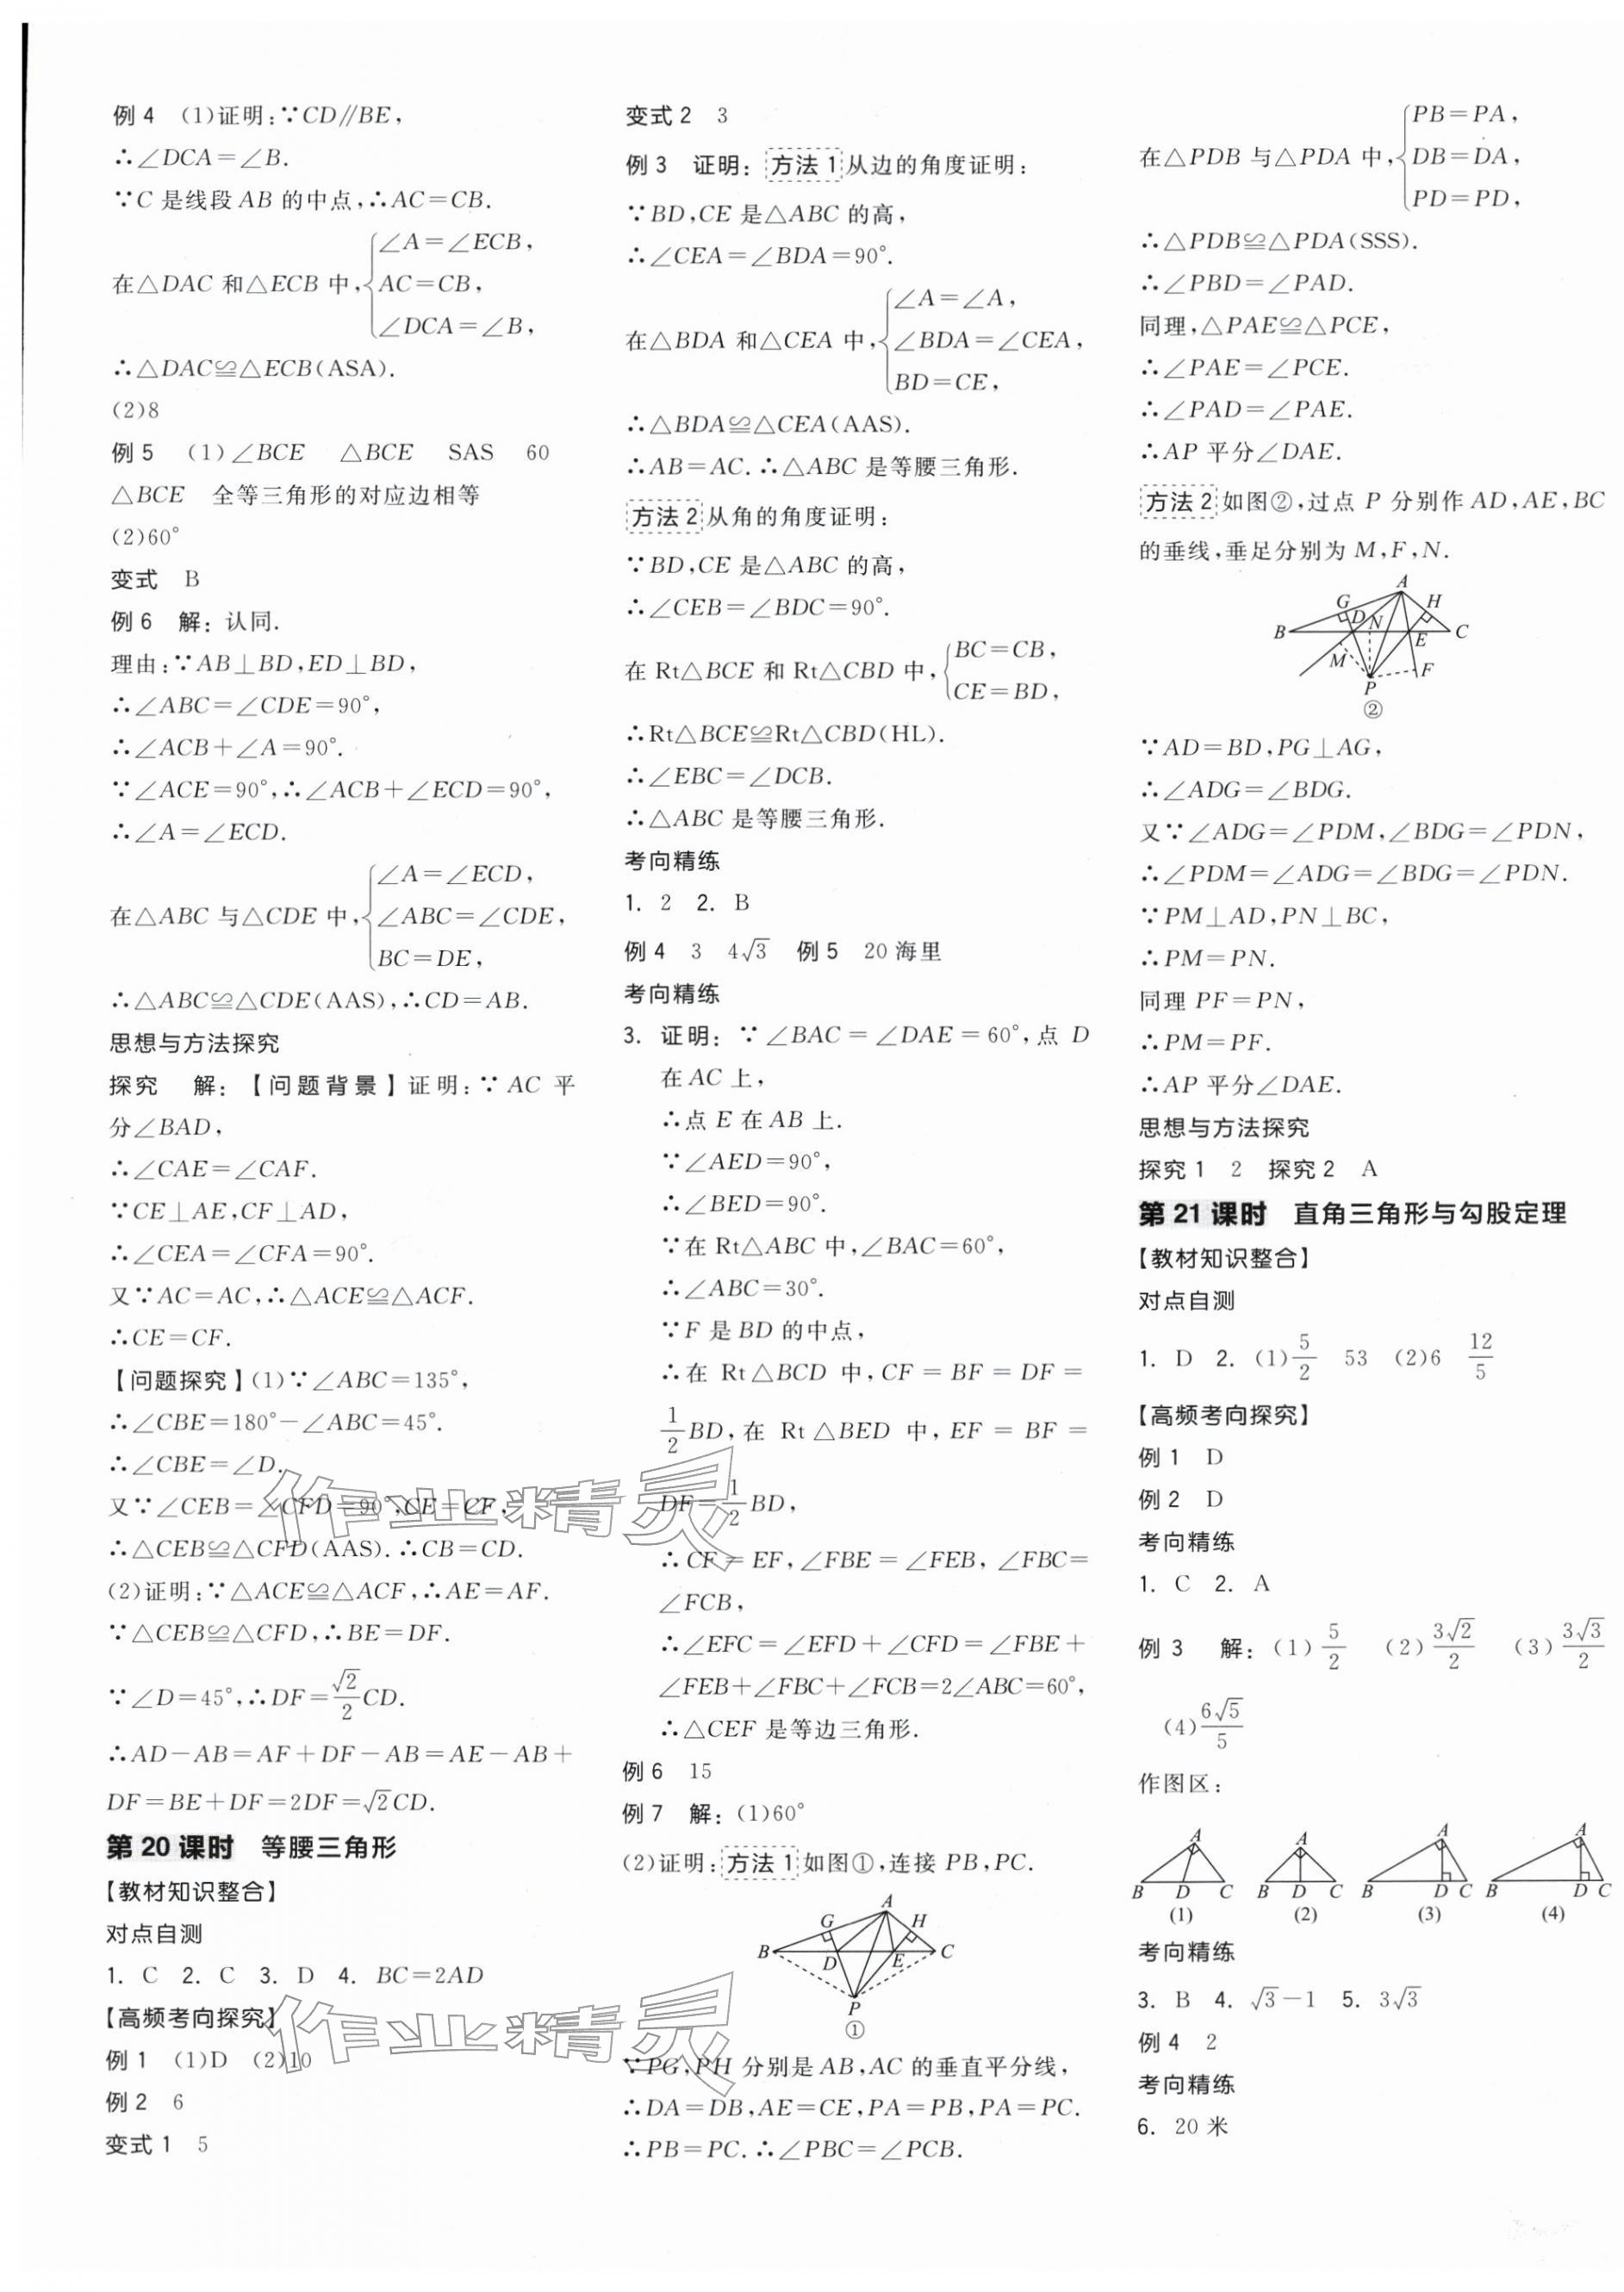 例4 (1)证明:∵CD∥BE,
∴∠DCA=∠B.
∵C是线段AB的中点,∴AC=CB.
在△DAC和△ECB中,{∠A=∠ECB,
AC=CB,
∠DCA=∠B,
∴△DAC≌△ECB(ASA).
(2)8
例5 (1)∠BCE △BCE SAS 60
△BCE 全等三角形的对应边相等
(2)60°
变式 B
例6 解:认同.
理由:∵AB⊥BD,ED⊥BD,
∴∠ABC=∠CDE=90°,
∴∠ACB+∠A=90°.
∵∠ACE=90°,∴∠ACB+∠ECD=90°,
∴∠A=∠ECD.
在△ABC与△CDE中,{∠A=∠ECD,
∠ABC=∠CDE,
BC=DE,
∴△ABC≌△CDE(AAS),∴CD=AB.
思想与方法探究
探究 解:【问题背景】证明:∵AC平
分∠BAD,
∴∠CAE=∠CAF.
∵CE⊥AE,CF⊥AD,
∴∠CEA=∠CFA=90°.
又∵AC=AC,∴△ACE≌△ACF.
∴CE=CF.
【问题探究】(1)∵∠ABC=135°,
∴∠CBE=180°-∠ABC=45°.
∴∠CBE=∠D.
又∵∠CEB=∠CFD=90°,CE=CF,
∴△CEB≌△CFD(AAS).∴CB=CD.
(2)证明:∵△ACE≌△ACF,∴AE=AF.
∵△CEB≌△CFD,∴BE=DF.
∵∠D=45°,∴DF=√2/2CD.
∴AD-AB=AF+DF-AB=AE-AB+
DF=BE+DF=2DF=√2CD.
第20课时 等腰三角形
【教材知识整合】
对点自测
1. C 2. C 3. D 4. BC=2AD
【高频考向探究】
例1 (1)D (2)10
例2 6
变式1 5
变式2 3
例3 证明:方法1从边的角度证明:
∵BD,CE是△ABC的高,
∴∠CEA=∠BDA=90°.
在△BDA和△CEA中,{∠A=∠A,
∠BDA=∠CEA,
BD=CE,
∴△BDA≌△CEA(AAS).
∴AB=AC.∴△ABC是等腰三角形.
方法2从角的角度证明:
∵BD,CE是△ABC的高,
∴∠CEB=∠BDC=90°.
在Rt△BCE和Rt△CBD中,{BC=CB,
CE=BD,
∴Rt△BCE≌Rt△CBD(HL).
∴∠EBC=∠DCB.
∴△ABC是等腰三角形.
考向精练
1. 2 2. B
例4 3 4√3 例5 20海里
考向精练
3. 证明:∵∠BAC=∠DAE=60°,点D
在AC上,
∴点E在AB上.
∵∠AED=90°,
∴∠BED=90°.
∵在Rt△ABC中,∠BAC=60°,
∴∠ABC=30°.
∵F是BD的中点,
∴在Rt△BCD中,CF=BF=DF=
1/2BD,在Rt△BED中,EF=BF=
DF=1/2BD,
∴CF=EF,∠FBE=∠FEB,∠FBC=
∠FCB,
∴∠EFC=∠EFD+∠CFD=∠FBE+
∠FEB+∠FBC+∠FCB=2∠ABC=60°,
∴△CEF是等边三角形.
例6 15
例7 解:(1)60°
(2)证明:方法1如图①,连接PB,PC.
A
G H
B D E C
P
①
∵PG,PH分别是AB,AC的垂直平分线,
∴DA=DB,AE=CE,PA=PB,PA=PC.
∴PB=PC.∴∠PBC=∠PCB.
在△PDB与△PDA中,{PB=PA,
DB=DA,
PD=PD,
∴△PDB≌△PDA(SSS).
∴∠PBD=∠PAD.
同理,△PAE≌△PCE,
∴∠PAE=∠PCE.
∴∠PAD=∠PAE.
∴AP平分∠DAE.
方法2如图②,过点P分别作AD,AE,BC
的垂线,垂足分别为M,F,N.
A
G H
D N
B E C
M F
P
②
∵AD=BD,PG⊥AG,
∴∠ADG=∠BDG.
又∵∠ADG=∠PDM,∠BDG=∠PDN,
∴∠PDM=∠ADG=∠BDG=∠PDN.
∵PM⊥AD,PN⊥BC,
∴PM=PN.
同理PF=PN,
∴PM=PF.
∴AP平分∠DAE.
思想与方法探究
探究1 2 探究2 A
第21课时 直角三角形与勾股定理
【教材知识整合】
对点自测
1. D 2. (1)5/2 53 (2)6 12/5
【高频考向探究】
例1 D
例2 D
考向精练
1. C 2. A
例3 解:(1)5/2 (2)3√2/2 (3)3√3/2
(4)6√5/5
作图区:
A A A A
B D C B D C B D C B D C
(1) (2) (3) (4)
考向精练
3. B 4. √3-1 5. 3√3
例4 2
考向精练
6. 20米
作业精灵
作业精灵